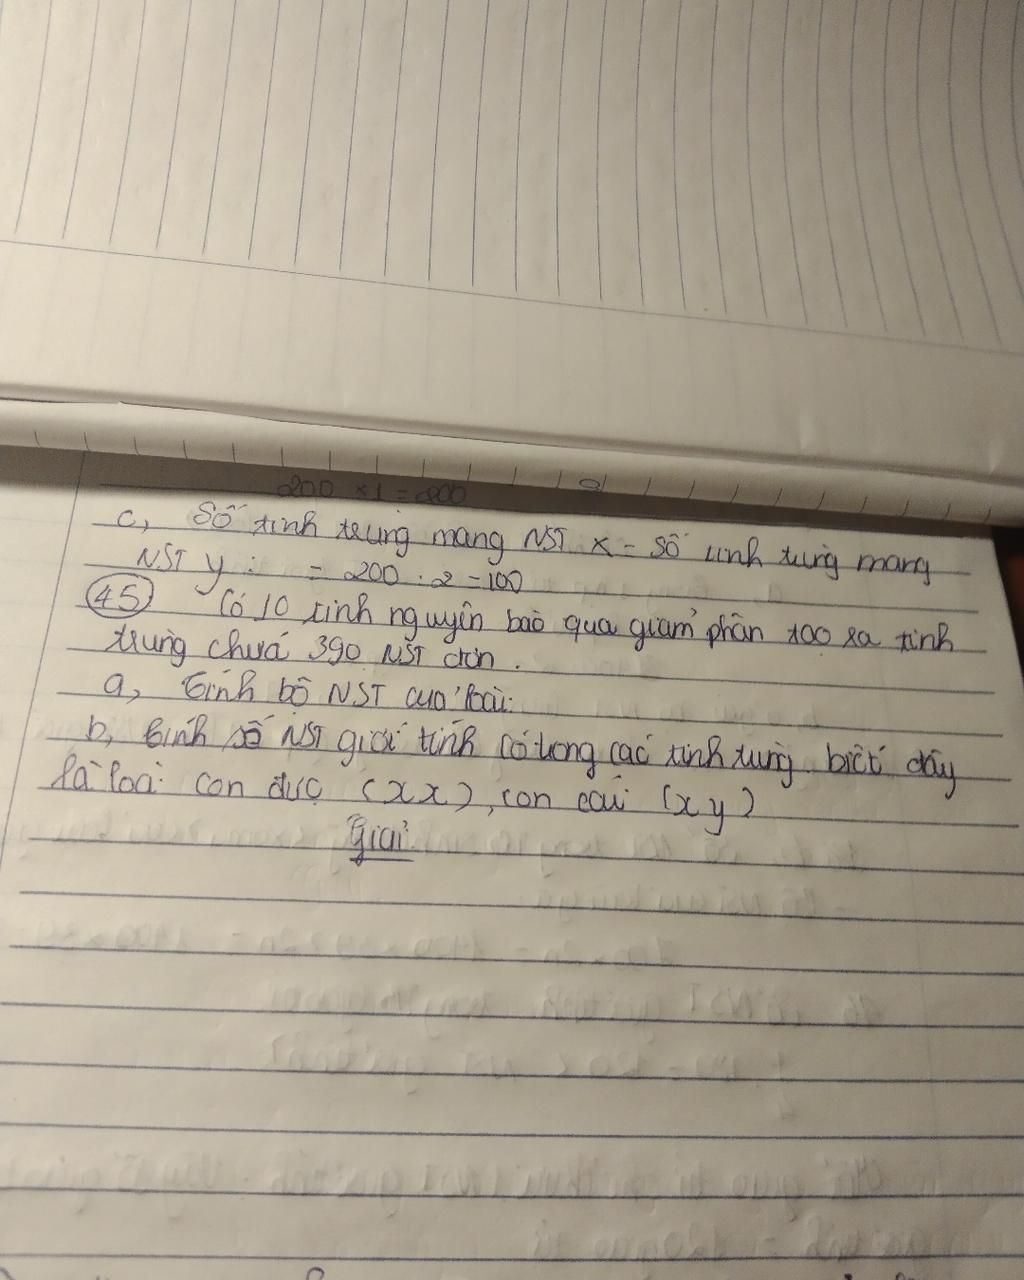 200 x 1 = 200
c, Số tinh trùng mang NST X = Số tinh trùng mang
NST y : = 200 : 2 = 100
45 Có 10 tinh nguyên bào qua giảm phân tạo ra tinh
trùng chứa 390 NST đơn .
a, Tính bộ NST của loài.
b, Tính số NST giới tính có trong các tinh trùng. biết đây
là loài con đực (xx), con cái (xy)
Giải